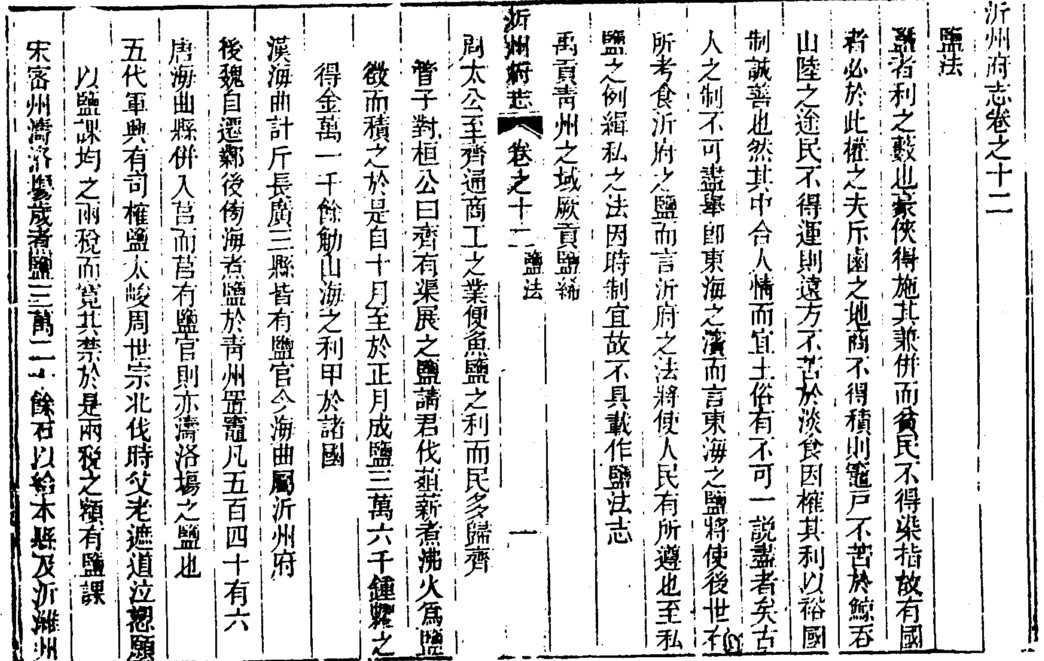 沂州府志卷之十二
鹽法
鹽者利之藪也豪俠得施其兼併而貧民不得染指故有國
者必於此權之夫斥鹵之地商不得積則竈戶不苦於鯨吞
山陸之途民不得運則遠方不苦於淡食因榷其利以裕國
制誠善也然其中合人情而宜土俗有不可一說盡者矣古
人之制不可盡舉卽東海之濱而言東海之鹽將使後世有
所考食沂府之鹽而言沂府之法將使人民有所遵也至私
鹽之例緝私之法因時制宜故不具載作鹽法志
禹貢靑州之域厥貢鹽絺
沂州府志 卷之十二 鹽法 一
周太公至齊通商工之業便魚鹽之利而民多歸齊
管子對桓公曰齊有渠展之鹽請君伐菹薪煮沸火爲鹽
徵而積之於是自十月至於正月成鹽三萬六千鍾糶之
得金萬一千餘觔山海之利甲於諸國
漢海曲計斤長廣三縣皆有鹽官今海曲屬沂州府
後魏自遷鄴後傍海煮鹽於靑州置竈凡五百四十有六
唐海曲縣併入莒而莒有鹽官則亦濤洛場之鹽也
五代軍興有司榷鹽太峻周世宗北伐時父老遮道泣懇願
以鹽課均之兩稅而寬其禁於是兩稅之額有鹽課
宋密州濤洛場歲煮鹽三萬二千餘石以給本縣及沂濰州